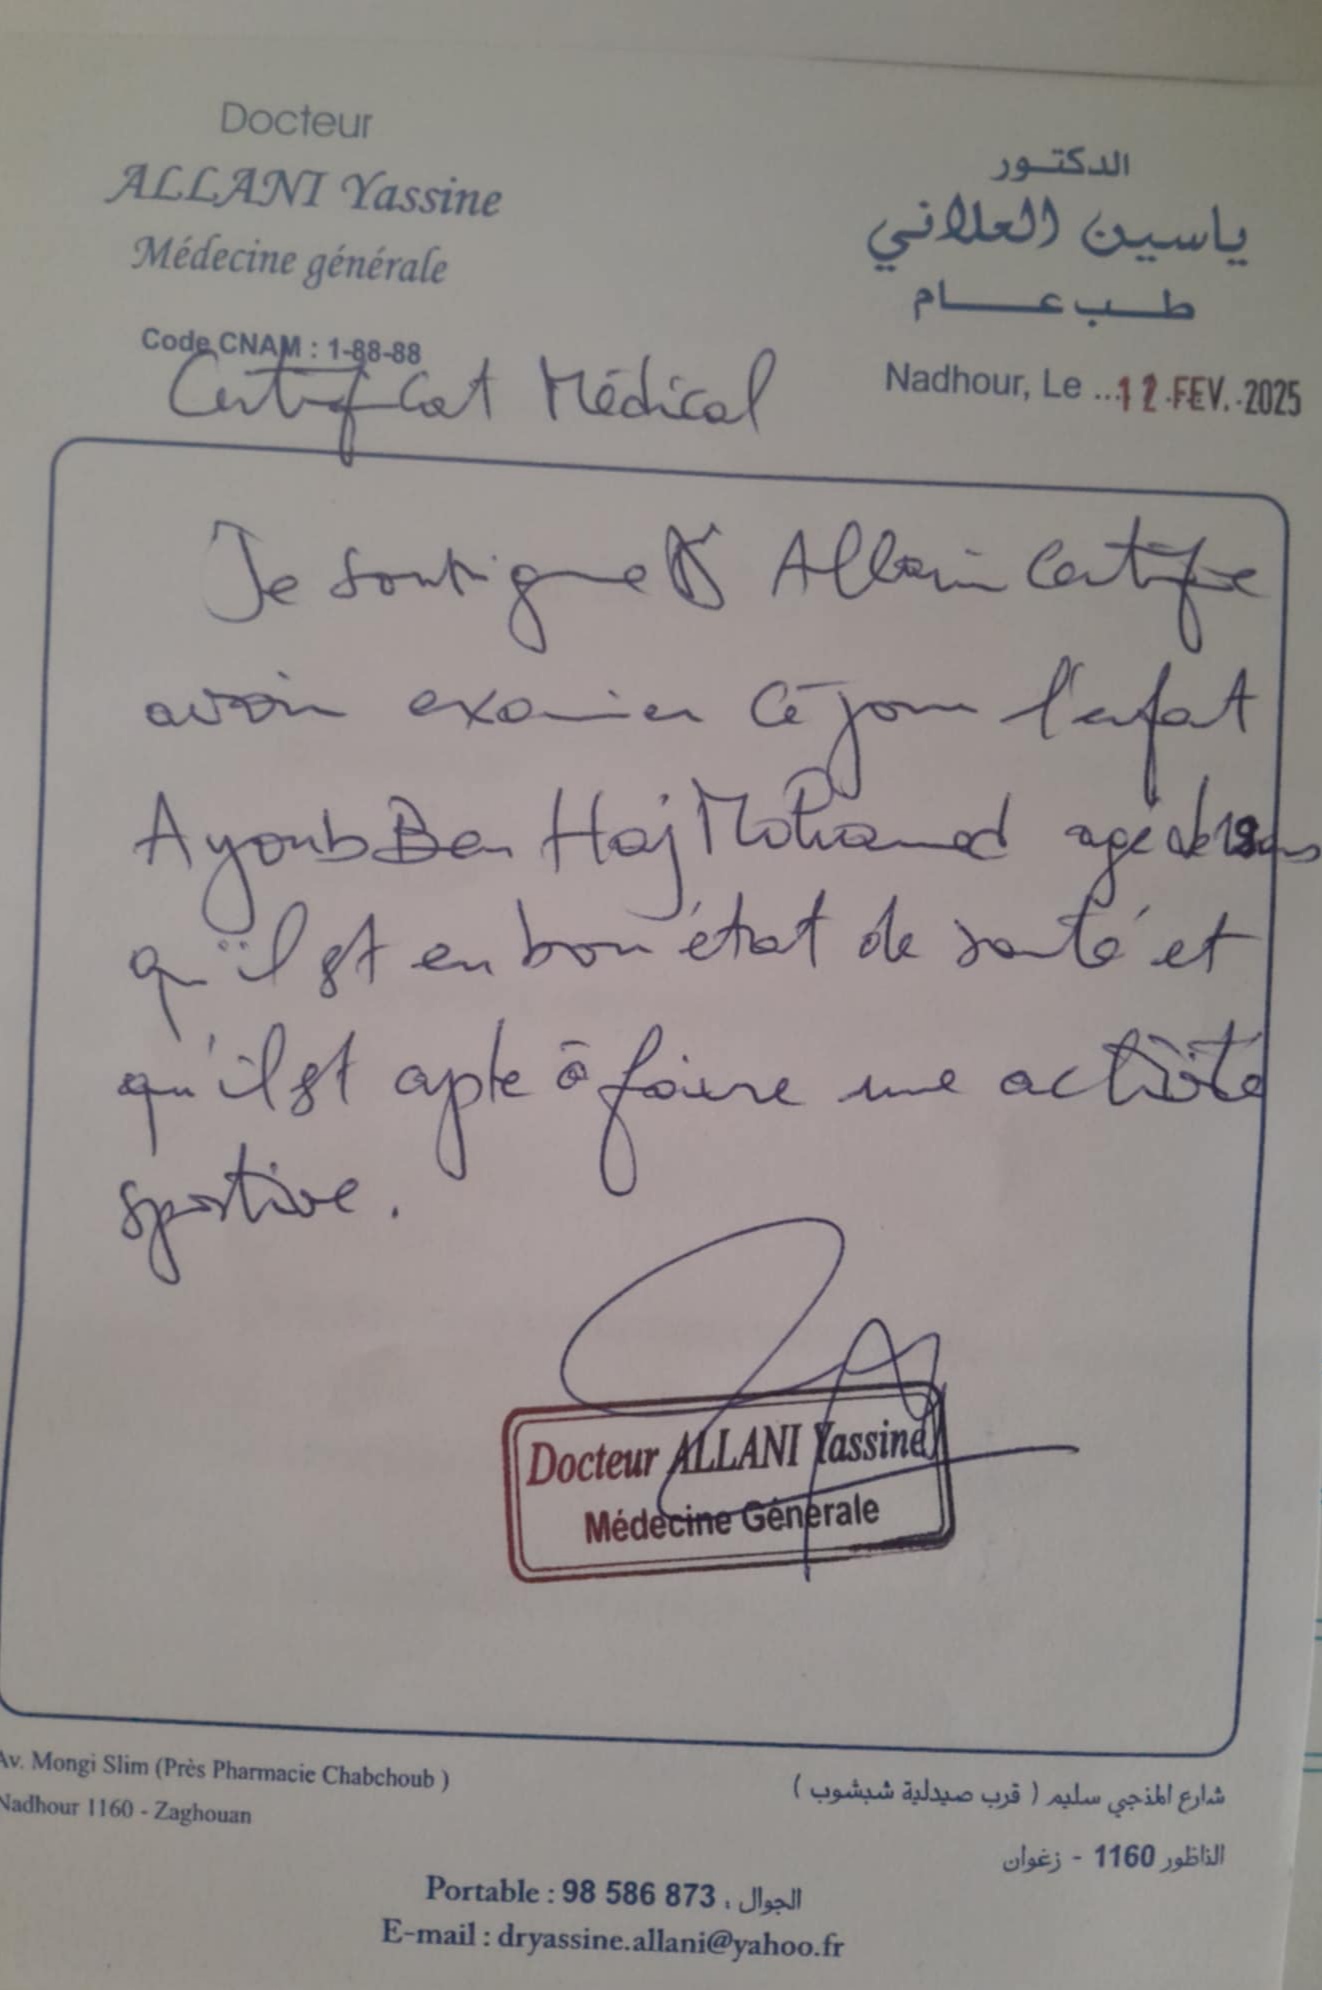 Docteur
ALLANI Yassine
Médecine générale
Code CNAM : 1-88-88
الدكتور
ياسين العلاني
طب عام
Nadhour, Le ... 12 FEV. 2025
Certificat Médical
Je soussigné Dr Allani Certifie
avoir examiner Ce jour l'enfant
Ayoub Ben Haj Mohamed agé de ans
qu'il est en bon état de santé et
qu'il est apte à faire une activité
sportive.
Docteur ALLANI Yassine
Médecine Générale
Av. Mongi Slim (Près Pharmacie Chabchoub )
Nadhour 1160 - Zaghouan
شارع المنجي سليم ( قرب صيدلية شبشوب )
الناظور 1160 - زغوان
Portable : 98 586 873 : الجوال
E-mail : dryassine.allani@yahoo.fr